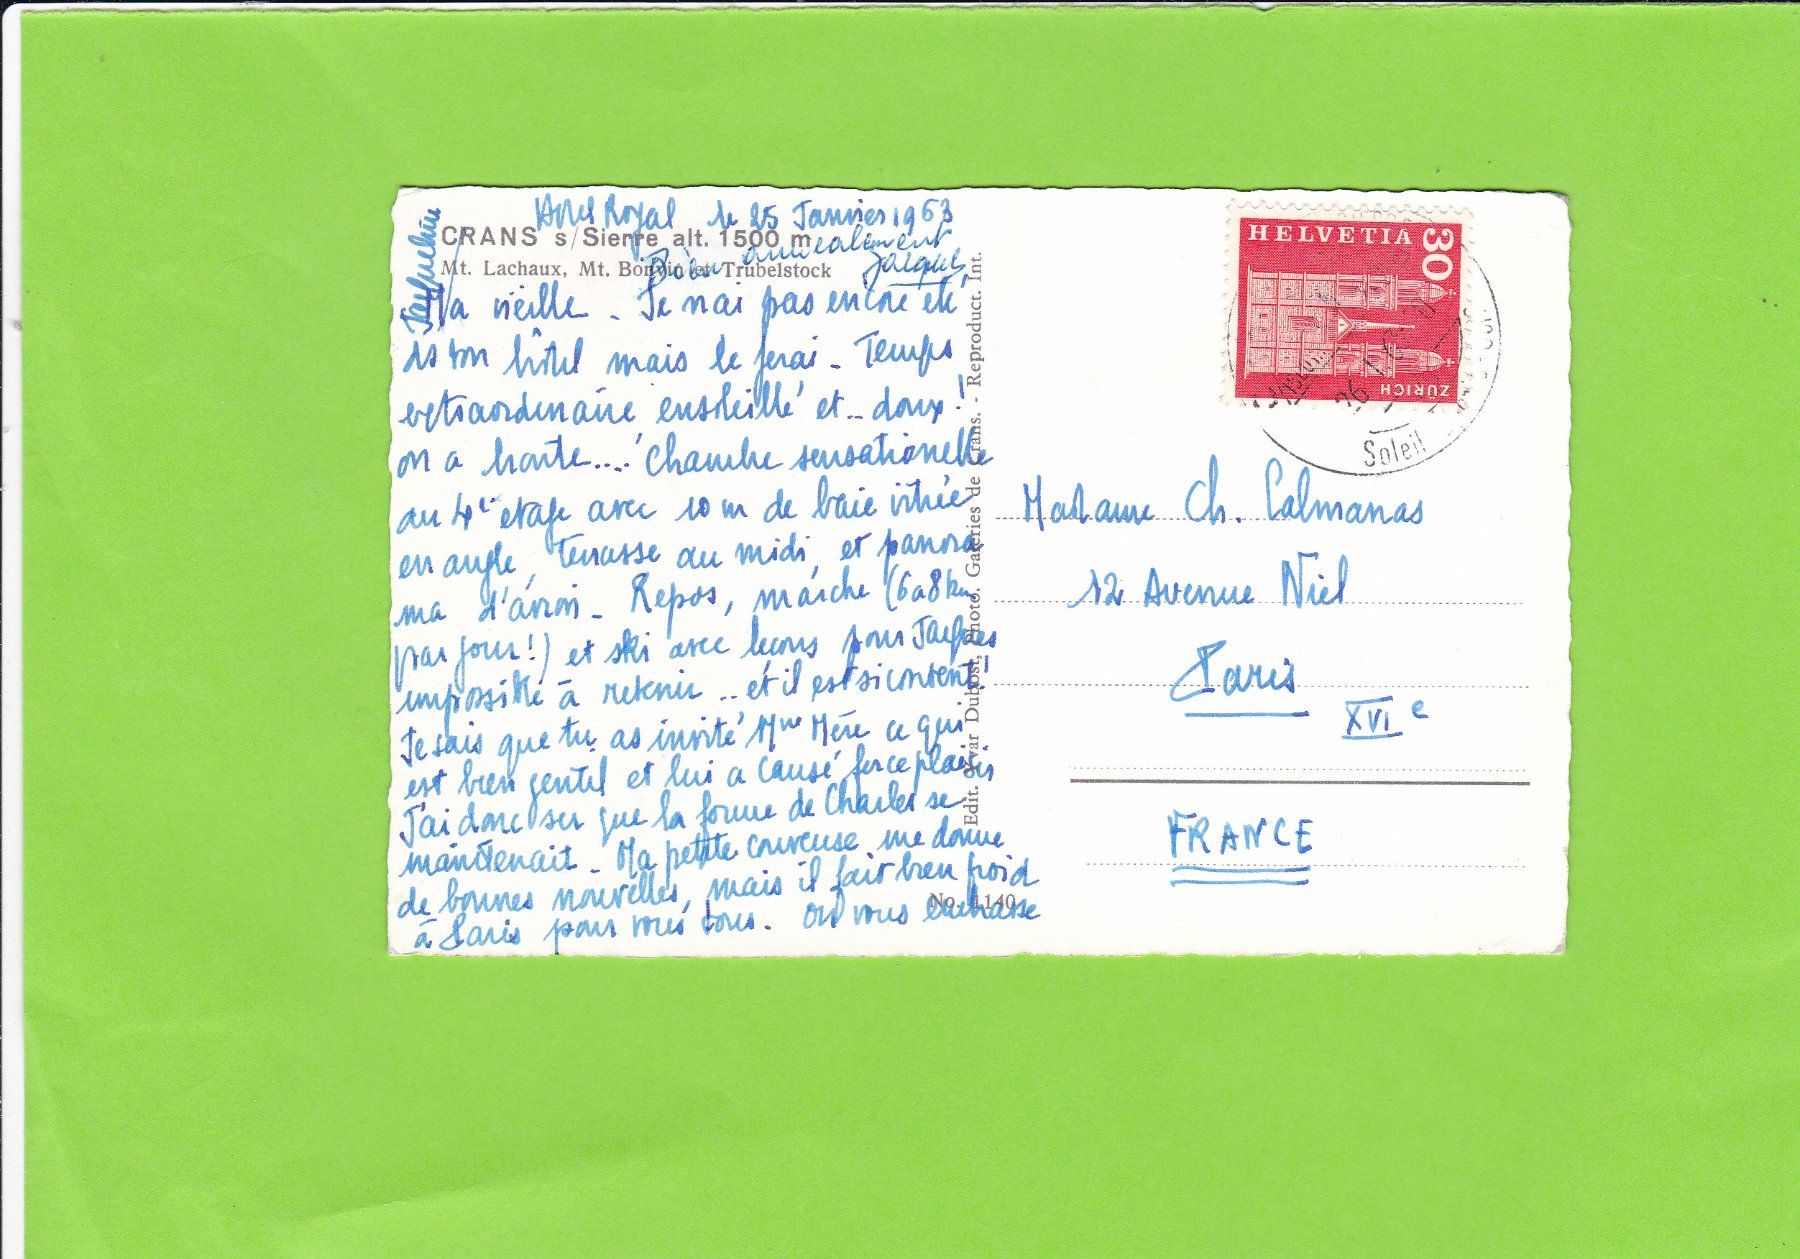 Hôtel Royal le 25 Janvier 1963
CRANS s/Sierre alt. 1500 m
Bien amicalement
Jacques
Mt. Lachaux, Mt. Bonvin et Trubelstock
Jacqueline
Ma vieille - Je n'ai pas encore été
ds ton hôtel mais le ferai - Temps
extraordinaire ensoleillé et.. doux!
on a honte.... Chambre sensationelle
au 4e etage avec 10 m de baie vitrée
en angle, terrasse au midi, et panora
ma d'avion - Repos, marche (6 a 8 km
par jour!) et ski avec leçons pour Jacques
impossible à retenir .. et il est si content!
Je sais que tu as invité Mme Mère ce qui
est bien gentil et lui a causé force plaisir
J'ai donc su que la forme de Charles se
maintenait - Ma petite coureuse me donne
de bonnes nouvelles, mais il fait bien froid
à Paris pour vous tous. On vous embrasse
No. 1140
Edit. Yvar Dubost, Photo. Galeries de Crans. - Reproduct. Int.
HELVETIA 30
ZÜRICH
Soleil
Madame Ch. Calmanas
12 Avenue Niel
Paris
XVIe
FRANCE